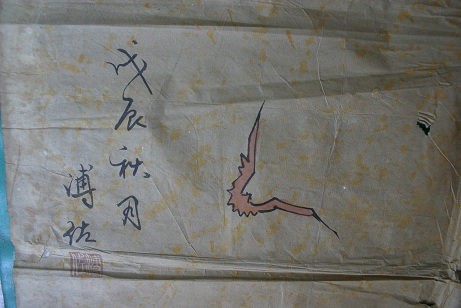 戊辰秋月
溥佐